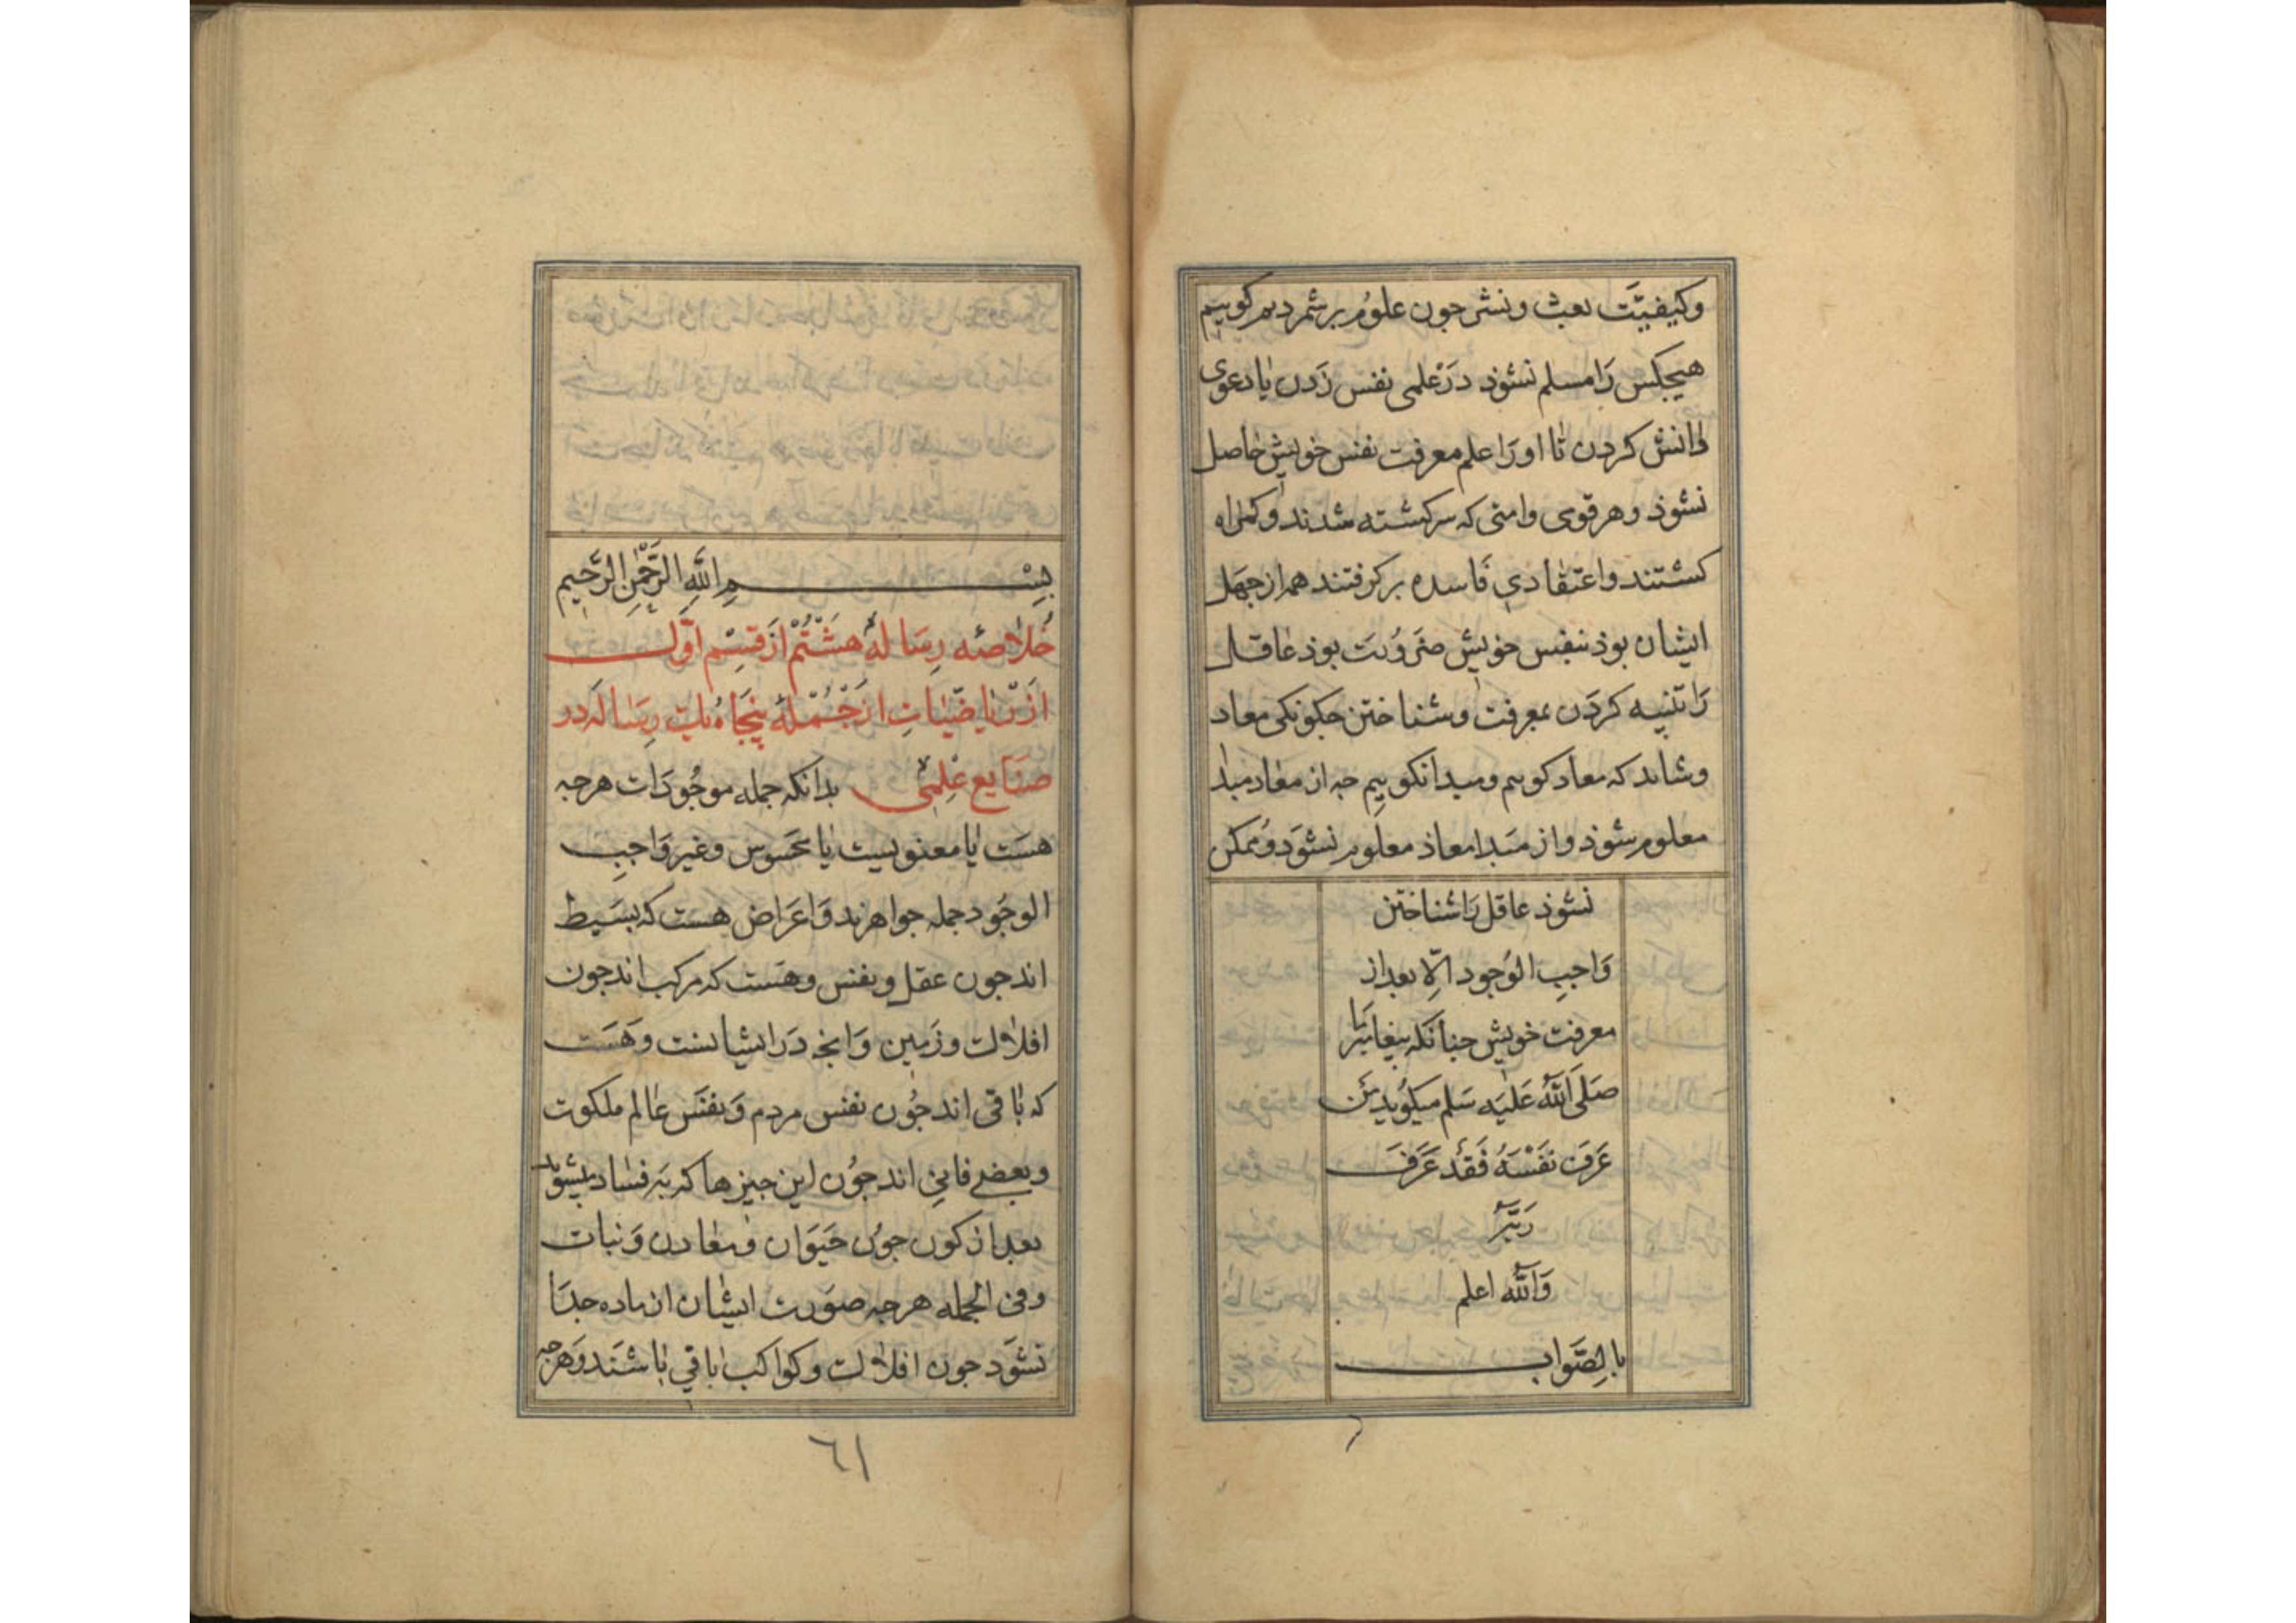 وکیفیّت بعث ونشر جون علوُم برشمردیم کوییم
هیجکس رَا مسلم نشوذ در عِلمی نفس زَدن یٰا دعوی
دٰانش کردن تٰا اورَا علم معرفت نفس خویش حٰاصل
نشوذ وهر قومی وامتی که سرکشته شدند وکمراه
کشتند واعتقٰادی فَاسده برکرفتند هم از جهَل
ایشان بوذ بنفس خویش ضرَوُرت بوذ عٰاقل
رَا تنبیه کردَن بمعرفت وشناختن جکونکی معاد
وشاید که معاد کوییم ومبدا نکوییم جه از معٰاد مبدٰا
معلوم شوذ واز مَبدا معاذ معلوم نشوَد وَممکن
نشوذ عاقل رَا شناختن
وَاجبِ الوُجود الّا بعد از
معرفت خویش جنانَکه بیغامبر مٰا
صَلَی اللّٰهُ عَلیَه سَلم میکوُید مَن
عَرَفَ نَفَسْهُ فَقَدْ عَرَفَ
رَبَّهُ
وَاللّٰه اعلم
بالِصَّواب
بِسْمِ اللَّهِ الرَّحْمٰنِ الرَّحیم
خُلاصَه رِسَالهٔ هَشْتُم اَزْ قسِْم اَوَّل
اَزْ ریٰاضّیٰاتِ ازْ جُمْلهٔ پنجَاهُ یک رِسٰاله دَر
صَنَایع عِلمْی بدٰانکه جمله موجُودَات هرجه
هسَت یٰا معنویست یٰا محَسوس وغیر وَاجبِ
الوجَود جمله جواهرند وَاعرَاض هست که بسَیط
اند جون عقل ونفس وهَست که مرکب اند جون
افلاٰک وزَمین وَانجه دَر ایشانست وَهَست
که بٰاقی اند جوُن نفس مردم وَنفسَ عٰالم ملکوت
وبعضے فانیِ اند جوُن این جیزها که بَه فسٰاد میشوَند
بعد از کون جوُن حَیَوَان وَمعٰادن وَنبات
وفی الجمله هرجه صوَرت ایشٰان از ماده جدَا
نشوَد جون افلاٰک وکواکب بٰاقی بٰاشَند وَهرجه
٦١